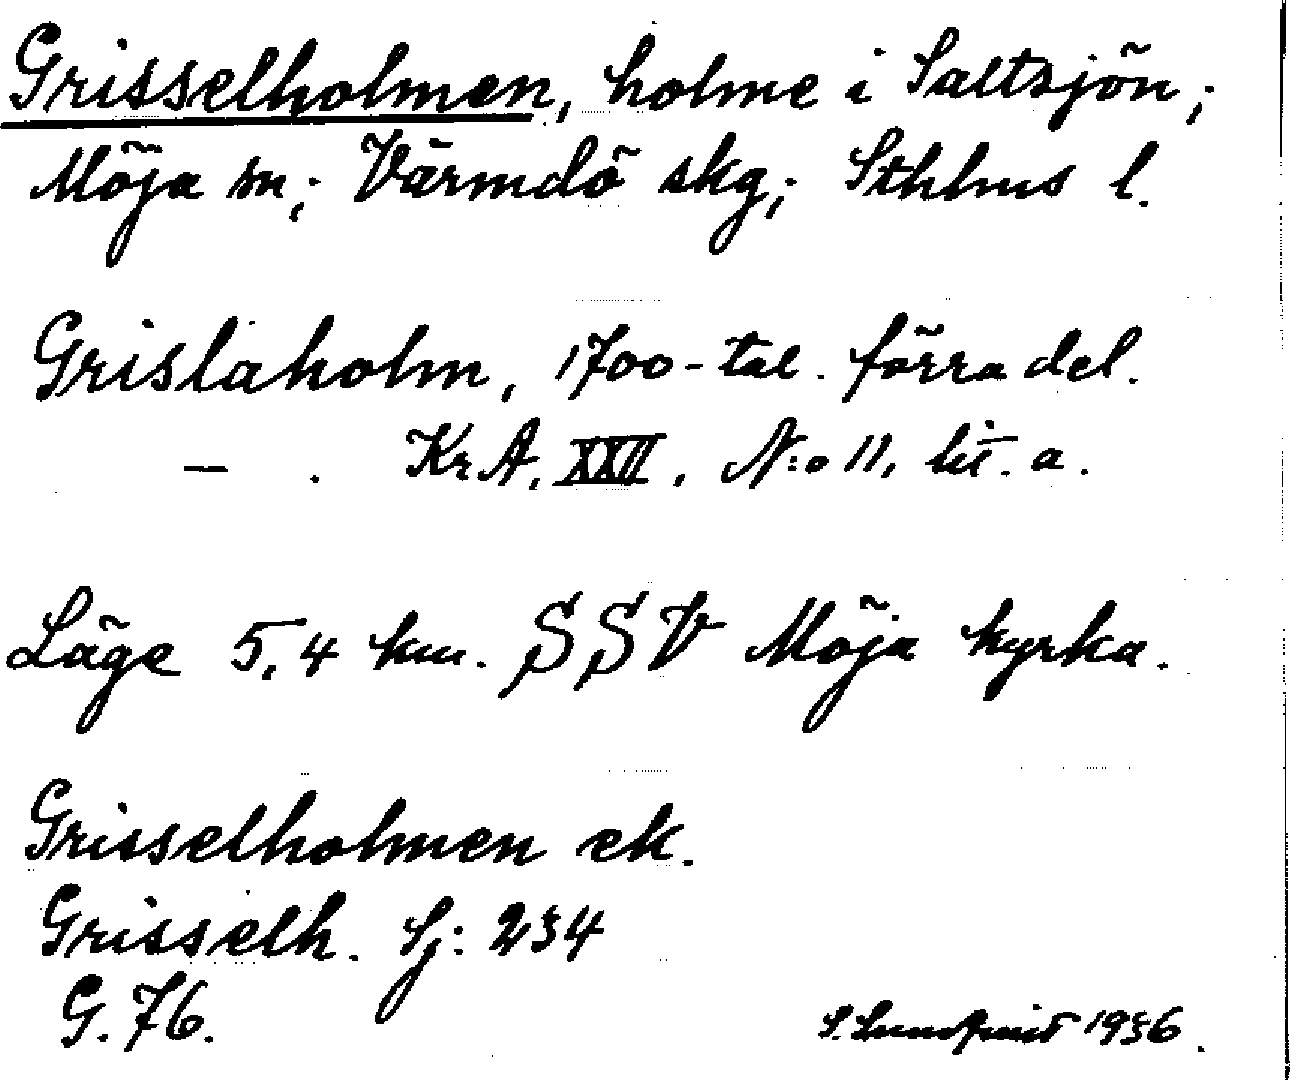 Grisselholmen, holme i Saltsjön;
Möja sn; Värmdö skg; Sthlms l.
Grislaholm, 1700-tal. förra del.
— . KrA, XXII, N:o 11, lit. a.
Läge 5,4 km. SSV Möja kyrka.
Grisselholmen ek.
Grisselh. Sj: 234
G. 76.
S. Lundquist 1936.